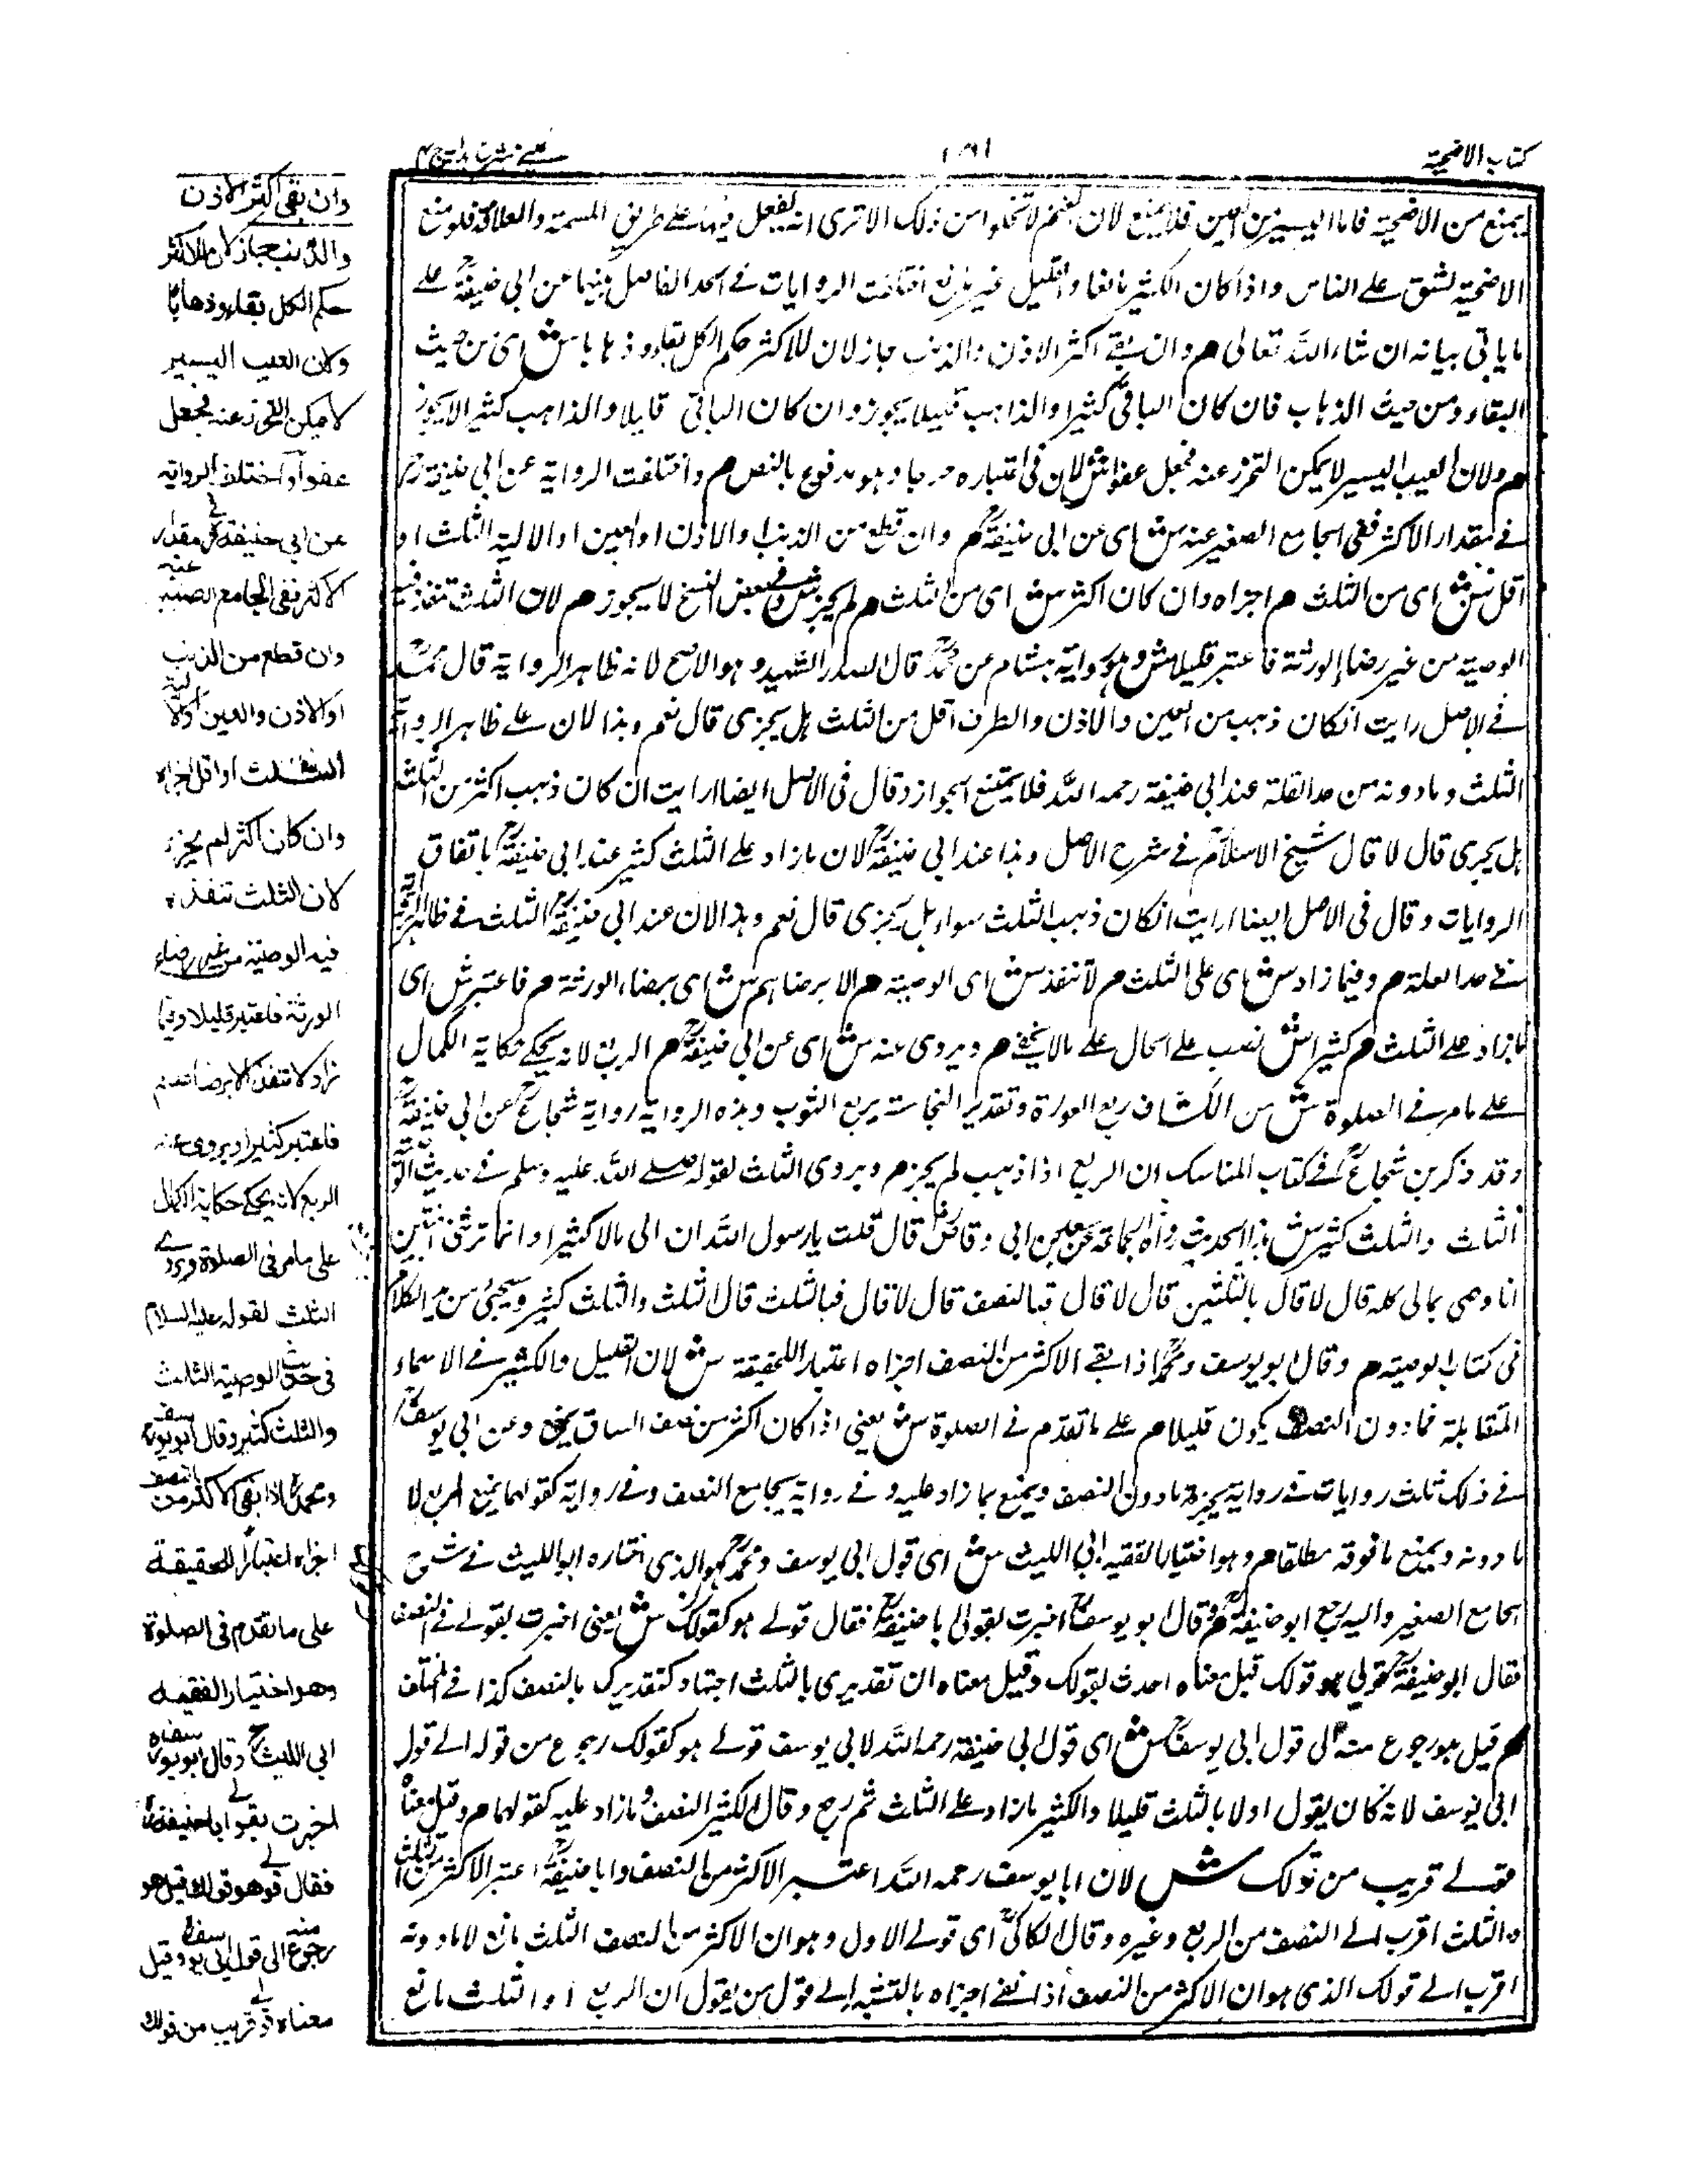 كتاب الاضحية
عينى شرح هدايه ج ٤
يمنع من الاضحية فاما اليسير من العين فلا يمنع لان الغنم لا تخلوا من ذلك الا ترى انه يفعل فيها على طريق السمة والعلامة فلو منع
الاضحية لشق على الناس واذا كان الكثير مانعا والقليل غير مانع اختلفت الروايات فى الحد الفاصل بينهما عن ابى حنيفة على
ما ياتى بيانه ان شاء الله تعالى م وان بقى اكثر الاذن والذنب جاز لان للاكثر حكم الكل بقاء وذهابا ش اى من حيث
البقاء ومن حيث الذهاب فان كان الباقى كثيرا والذاهب قليلا يجوز وان كان الباقى قليلا والذاهب كثيرا لا يجوز
م ولان العيب اليسير لا يمكن التحرز عنه فجعل عفوا ش لان فى اعتباره حرجا وهو مدفوع بالنص م واختلفت الرواية عن ابى حنيفة
فى مقدار الاكثر ففى الجامع الصغير عنه ش اى عن ابى حنيفة م وان قطع من الذنب او الاذن او العين او الالية الثلث او
اقل ش اى من الثلث م اجزاه وان كان اكثر ش اى من الثلث م لم يجز ش وفى بعض النسخ لا يجوز م لان الثلث تنفذ فيه
الوصية من غير رضا الورثة فاعتبر قليلا ش وهو رواية هشام عن محمد قال الصدر الشهيد وهو الاصح لانه ظاهر الرواية قال محمد
فى الاصل رايت ان كان ذهب من العين والاذن والطرف اقل من الثلث هل يجزى قال نعم وهذا لان على ظاهر الرواية
الثلث وما دونه من حد القلة عند ابى حنيفة رحمه الله فلا يمتنع الجواز وقال فى الاصل ايضا ارايت ان كان ذهب اكثر من الثلث
هل يجزى قال لا قال شيخ الاسلام فى شرح الاصل وهذا عند ابى حنيفة لان ما زاد على الثلث كثير عند ابى حنيفة باتفاق
الروايات وقال فى الاصل ايضا ارايت ان كان ذهب الثلث سواء هل يجزى قال نعم وهذا لان عند ابى حنيفة الثلث فى ظاهر الرواية
فى حد القلة م وفيما زاد ش اى على الثلث م لا تنفذ ش اى الوصية م الا برضاهم ش اى برضاء الورثة م فاعتبر ش اى
ما زاد على الثلث م كثيرا ش نصب على الحال على ما لا يخفى م ويروى عنه ش اى عن ابى حنيفة م الربع لانه يحكى حكاية الكمال
على ما مر فى الصلوة ش من انكشاف ربع العورة وتقدير النجاسة بربع الثوب وهذه الرواية رواية شجاع عن ابى حنيفة
وقد ذكر بن شجاع فى كتاب المناسك ان الربع اذا ذهب لم يجز م ويروى الثلث لقوله صلى الله عليه وسلم فى حديث الوصية
الثلث والثلث كثير ش هذا الحديث رواه الجماعة عن سعد بن ابى وقاص قال قلت يا رسول الله ان لى مالا كثيرا وانما ترثنى ابنتى
افاوصى بمالى كله قال لا قال بالثلثين قال لا قال فبالنصف قال لا قال فبالثلث قال الثلث والثلث كثير وسيجئ مزيد الكلام
فى كتاب الوصية م وقال ابو يوسف ومحمد اذا بقى الاكثر من النصف اجزاه اعتبارا للحقيقة ش لان القليل والكثير فى الاسماء
المتقابلة فما دون النصف يكون قليلا م على ما تقدم فى الصلوة ش يعنى اذا كان اكثر من نصف الساق يمنع وعن ابى يوسف
فى ذلك ثلث روايات فى رواية يجزيه ما دون النصف ويمنع بما زاد عليه وفى رواية يجامع النصف وفى رواية كقولهما يمنع الربع لا
ما دونه ويمنع ما فوقه مطلقا م وهو اختيار الفقيه ابى الليث ش اى قول ابى يوسف ومحمد هو الذى اختاره ابو الليث فى شرح
الجامع الصغير واليه رجع ابو حنيفة م وقال ابو يوسف اخبرت بقولى ابا حنيفة فقال قولى هو كقولك ش يعنى اخبرت بقولى فى النصف
فقال ابو حنيفة قولى هو قولك قيل معناه احدث لقولك وقيل معناه ان تقديرى بالثلث اجتهاد كتقديرك بالنصف كذا فى المختلف
م قيل هو رجوع منه الى قول ابى يوسف ش اى قول ابى حنيفة رحمه الله لابى يوسف قولى هو كقولك رجوع من قوله الى قول
ابى يوسف لانه كان يقول اولا بالثلث قليلا والكثير ما زاد على الثلث ثم رجع وقال الكثير النصف وما زاد عليه كقولهما م وقيل معناه
قولى قريب من قولك ش لان ابا يوسف رحمه الله اعتبر الاكثر من النصف وابا حنيفة اعتبر الاكثر من الثلث
والثلث اقرب الى النصف من الربع وغيره وقال الكاكى اى قولى الاول وهو ان الاكثر من النصف الثلث مانع لا ما دونه
اقرب الى قولك الذى هو ان الاكثر من النصف اذا بقى اجزاه بالنسبة الى قول من يقول ان الربع او الثلث مانع
وان بقى اكثر الاذن
والذنب جاز لان للاكثر
حكم الكل بقاء وذهابا
ولان العيب اليسير
لا يمكن التحرز عنه فجعل
عفوا واختلف الرواية
عن ابى حنيفة فى مقدار
الاكثر ففى الجامع الصغير عنه
وان قطع من الذنب
او الاذن والعين او الالية
الثلث او اقل اجزاه
وان كان اكثر لم يجزه
لان الثلث تنفذ
فيه الوصية من غير رضاء
الورثة فاعتبر قليلا وفيما
زاد لا تنفذ الا برضاهم
فاعتبر كثيرا ويروى عنه
الربع لانه يحكى حكاية الكمال
على ما مر فى الصلاة ويروى
الثلث لقوله عليه السلام
فى حديث الوصية الثلث
والثلث كثير وقال ابو يوسف
ومحمد اذا بقى الاكثر من النصف
اجزاه اعتبارا للحقيقة
على ما تقدم فى الصلوة
وهو اختيار الفقيه
ابى الليث وقال ابو يوسف
اخبرت بقولى ابا حنيفة
فقال قولى هو قولك قيل هو
رجوع منه الى قول ابى يوسف وقيل
معناه قولى قريب من قولك